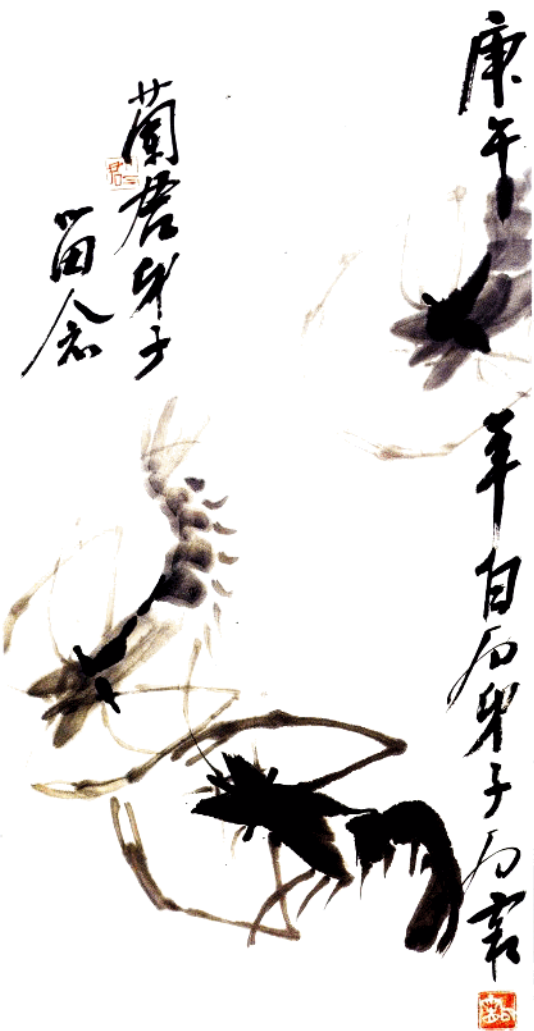 庚午年白石弟子石裳
蘭君弟子
留念